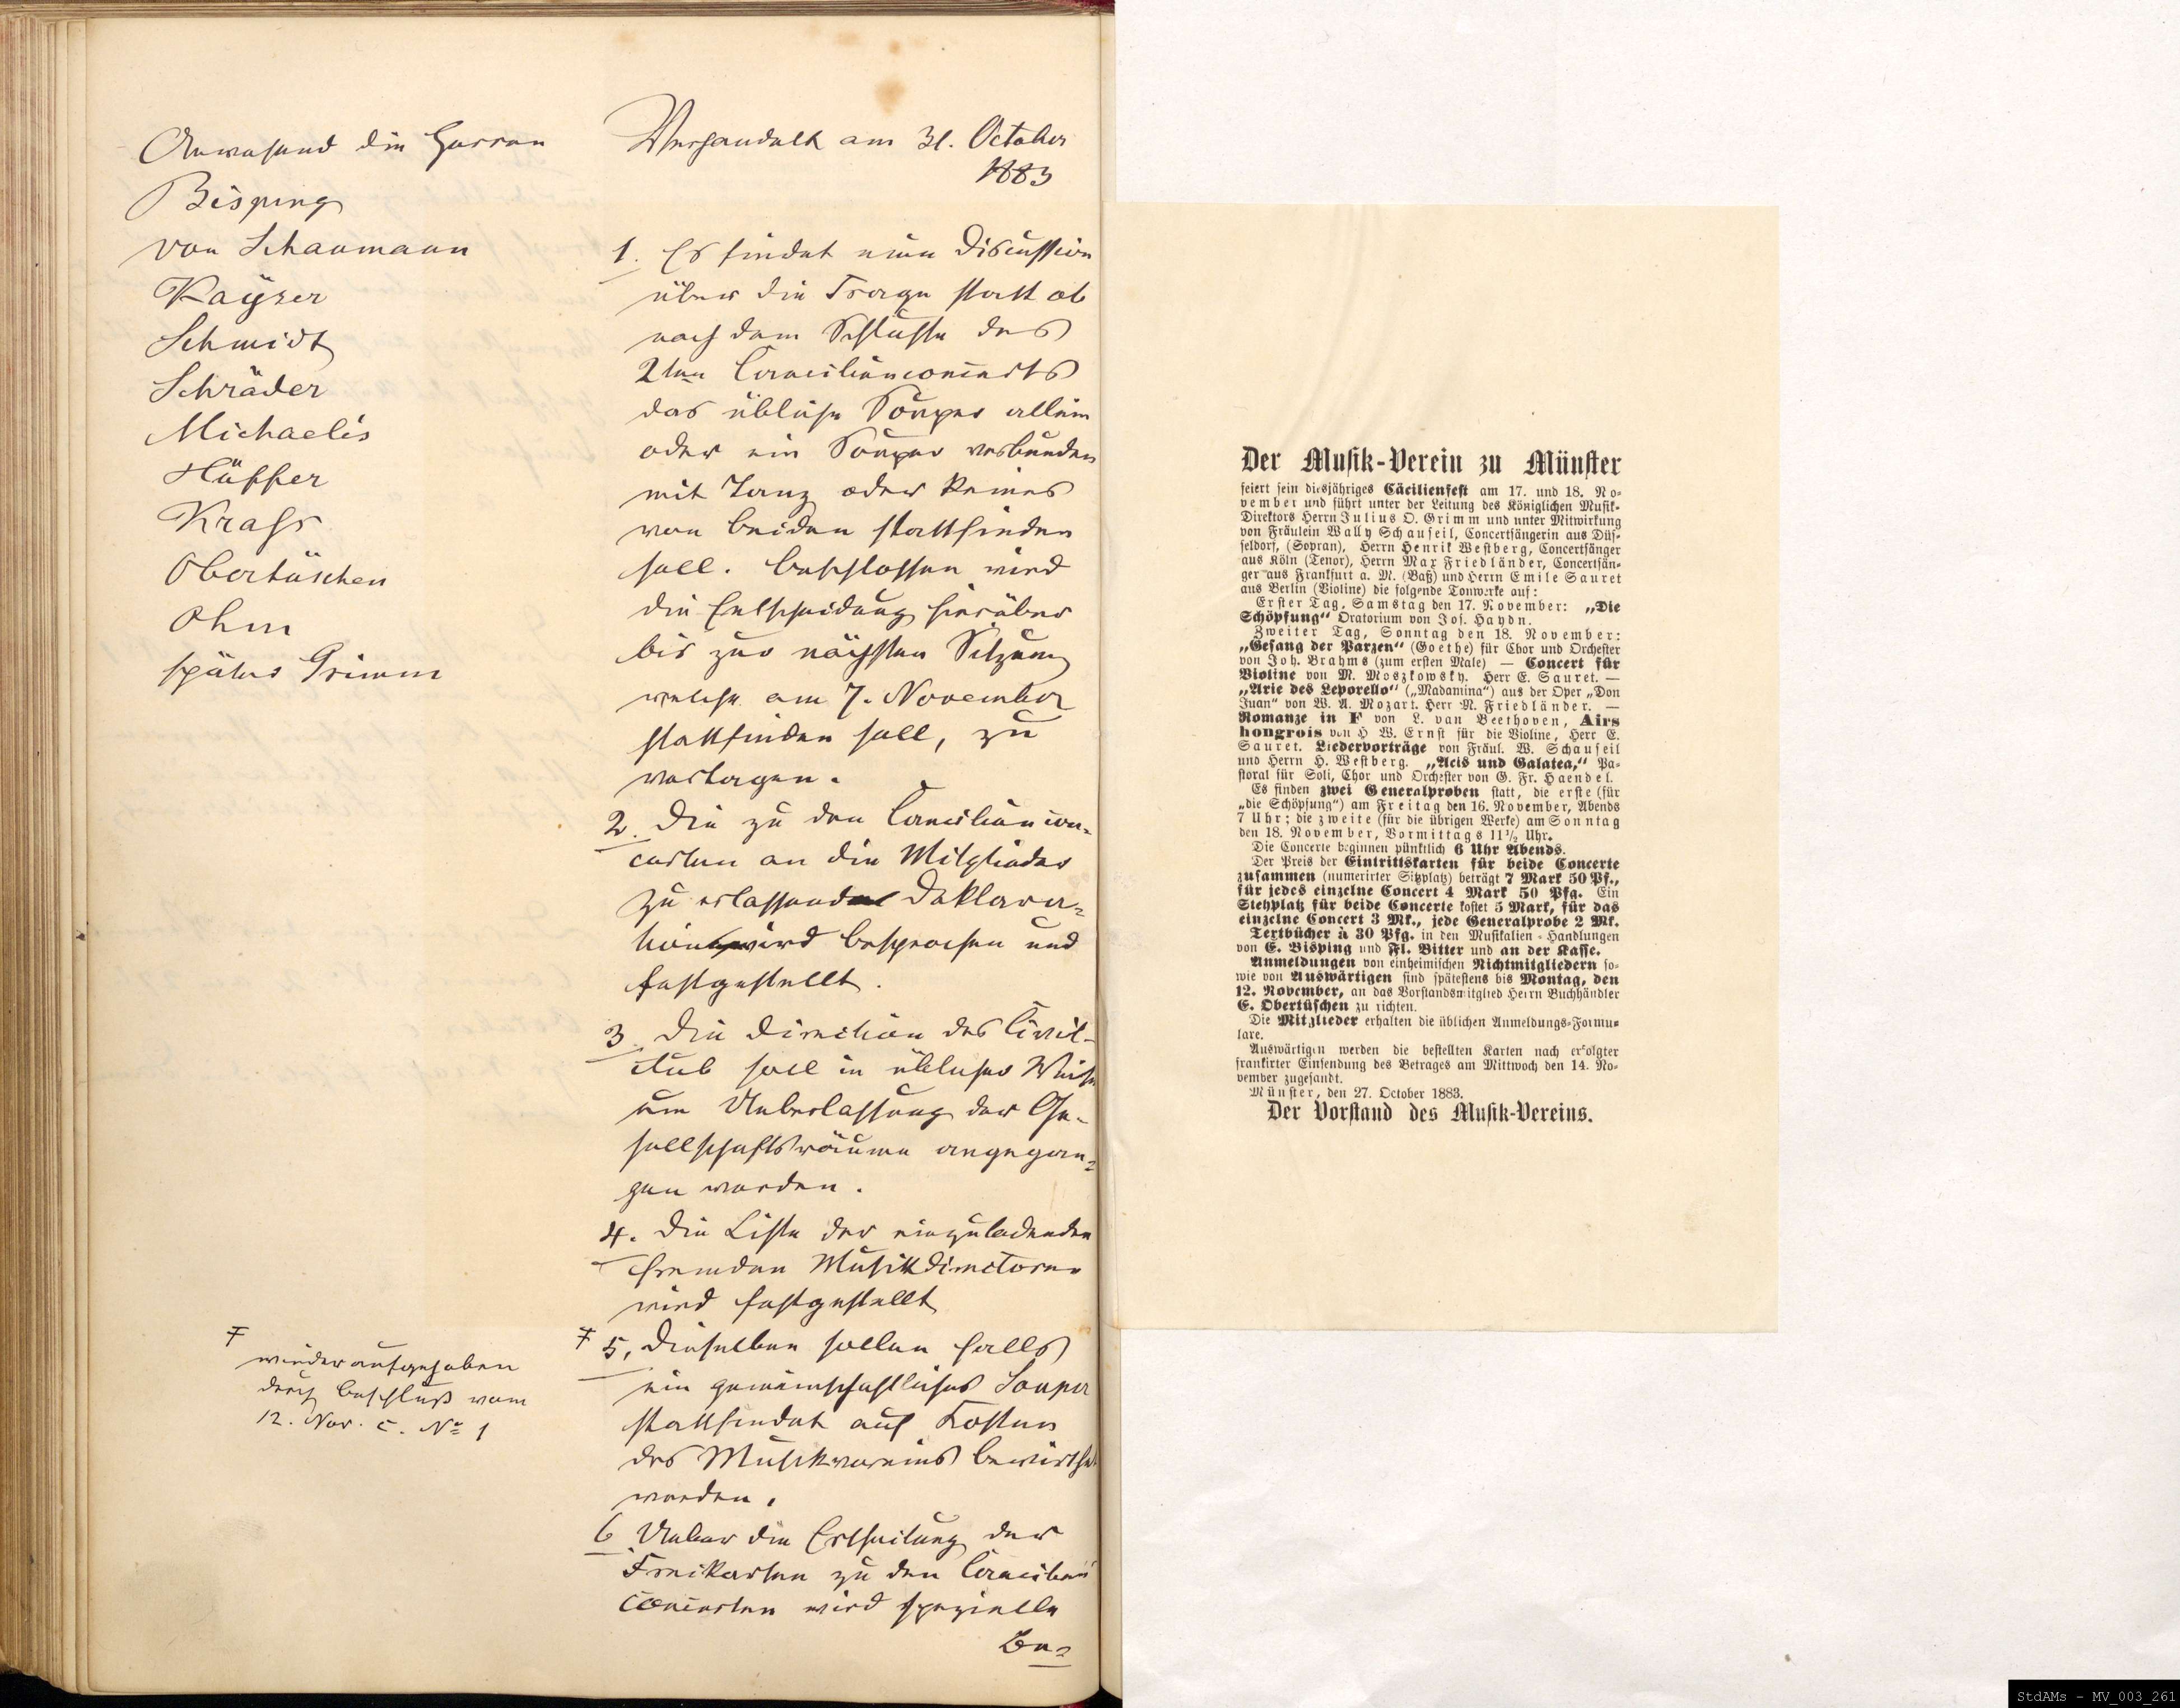 Anwesend die Herren
Bisping
von Schaumann
Kayser
Schmidt
Schräder
Michaelis
Hüffer
Krass
Obertüschen
Ohm
später Grimm
Verhandelt am 31. October
1883
1. Es findet eine Discussion
über die Frage statt ob
nach dem Schlusse des
2ten Caecilienconcerts
das übliche Souper allein
oder ein Souper verbunden
mit Tanz oder keines
von beiden stattfinden
soll. Beschlossen wird
die Entscheidung hierüber
bis zur nächsten Sitzung
welche am 7. November
stattfinden soll, zu
vertagen.
2. Die zu den Caeciliencon-
certen an die Mitglieder
zu erlassende Deklara-
tion wird besprochen und
festgestellt.
3. Die Direction des Civil-
club soll in üblicher Weise
um Ueberlassung der Ge-
sellschaftsräume angegan-
gen werden.
4. Die Liste der einzuladenden
fremden Musikdirectoren
wird festgestellt
Ŧ 5, Dieselben sollen falls
ein gemeinschaftliches Souper
stattfindet auf Kosten
des Musikvereins bewirthet
werden.
6 Ueber die Ertheilung der
Freikarten zu den Caecilien
concerten wird spezielle
Be-
Ŧ
wieder aufgehoben
durch Beschluß vom
12. Nov. c. No 1
Der Musik-Verein zu Münster
feiert sein diesjähriges Cäcilienfest am 17. und 18. No-
vember und führt unter der Leitung des Königlichen Musik-
Direktors Herrn Julius O. Grimm und unter Mitwirkung
von Fräulein Wally Schauseil, Concertsängerin aus Düs-
seldorf, (Sopran), Herrn Henrik Westberg, Concertsänger
aus Köln (Tenor), Herrn Max Friedländer, Concertsän-
ger aus Frankfurt a. M. (Baß) und Herrn Emile Sauret
aus Berlin (Violine) die folgende Tonwerke auf:
Erster Tag, Samstag den 17. November: „Die
Schöpfung“ Oratorium von Jos. Haydn.
Zweiter Tag, Sonntag den 18. November:
„Gesang der Parzen“ (Goethe) für Chor und Orchester
von Joh. Brahms (zum ersten Male) — Concert für
Violine von M. Moszkowsky. Herr E. Sauret. —
„Arie des Leporello“ („Madamina“) aus der Oper „Don
Juan“ von W. A. Mozart. Herr M. Friedländer. —
Romanze in F von L. van Beethoven, Airs
hongrois von H W. Ernst für die Violine, Herr E.
Sauret. Liedervorträge von Fräul. W. Schauseil
und Herrn H. Westberg. „Acis und Galatea,“ Pa-
storal für Soli, Chor und Orchester von G. Fr. Haendel.
Es finden zwei Generalproben statt, die erste (für
„die Schöpfung“) am Freitag den 16. November, Abends
7 Uhr; die zweite (für die übrigen Werke) am Sonntag
den 18. November, Vormittags 11½ Uhr.
Die Concerte beginnen pünktlich 6 Uhr Abends.
Der Preis der Eintrittskarten für beide Concerte
zusammen (numerirter Sitzplatz) beträgt 7 Mark 50 Pf.,
für jedes einzelne Concert 4 Mark 50 Pfg. Ein
Stehplatz für beide Concerte kostet 5 Mark, für das
einzelne Concert 3 Mk., jede Generalprobe 2 Mk.
Textbücher à 30 Pfg. in den Musikalien-Handlungen
von E. Bisping und Fl. Bitter und an der Kasse.
Anmeldungen von einheimischen Nichtmitgliedern so-
wie von Auswärtigen sind spätestens bis Montag, den
12. November, an das Vorstandsmitglied Herrn Buchhändler
E. Obertüschen zu richten.
Die Mitglieder erhalten die üblichen Anmeldungs-Formu-
lare.
Auswärtigen werden die bestellten Karten nach erfolgter
frankirter Einsendung des Betrages am Mittwoch den 14. No-
vember zugesandt.
Münster, den 27. October 1883.
Der Vorstand des Musik-Vereins.
StdAMs - MV_003_261